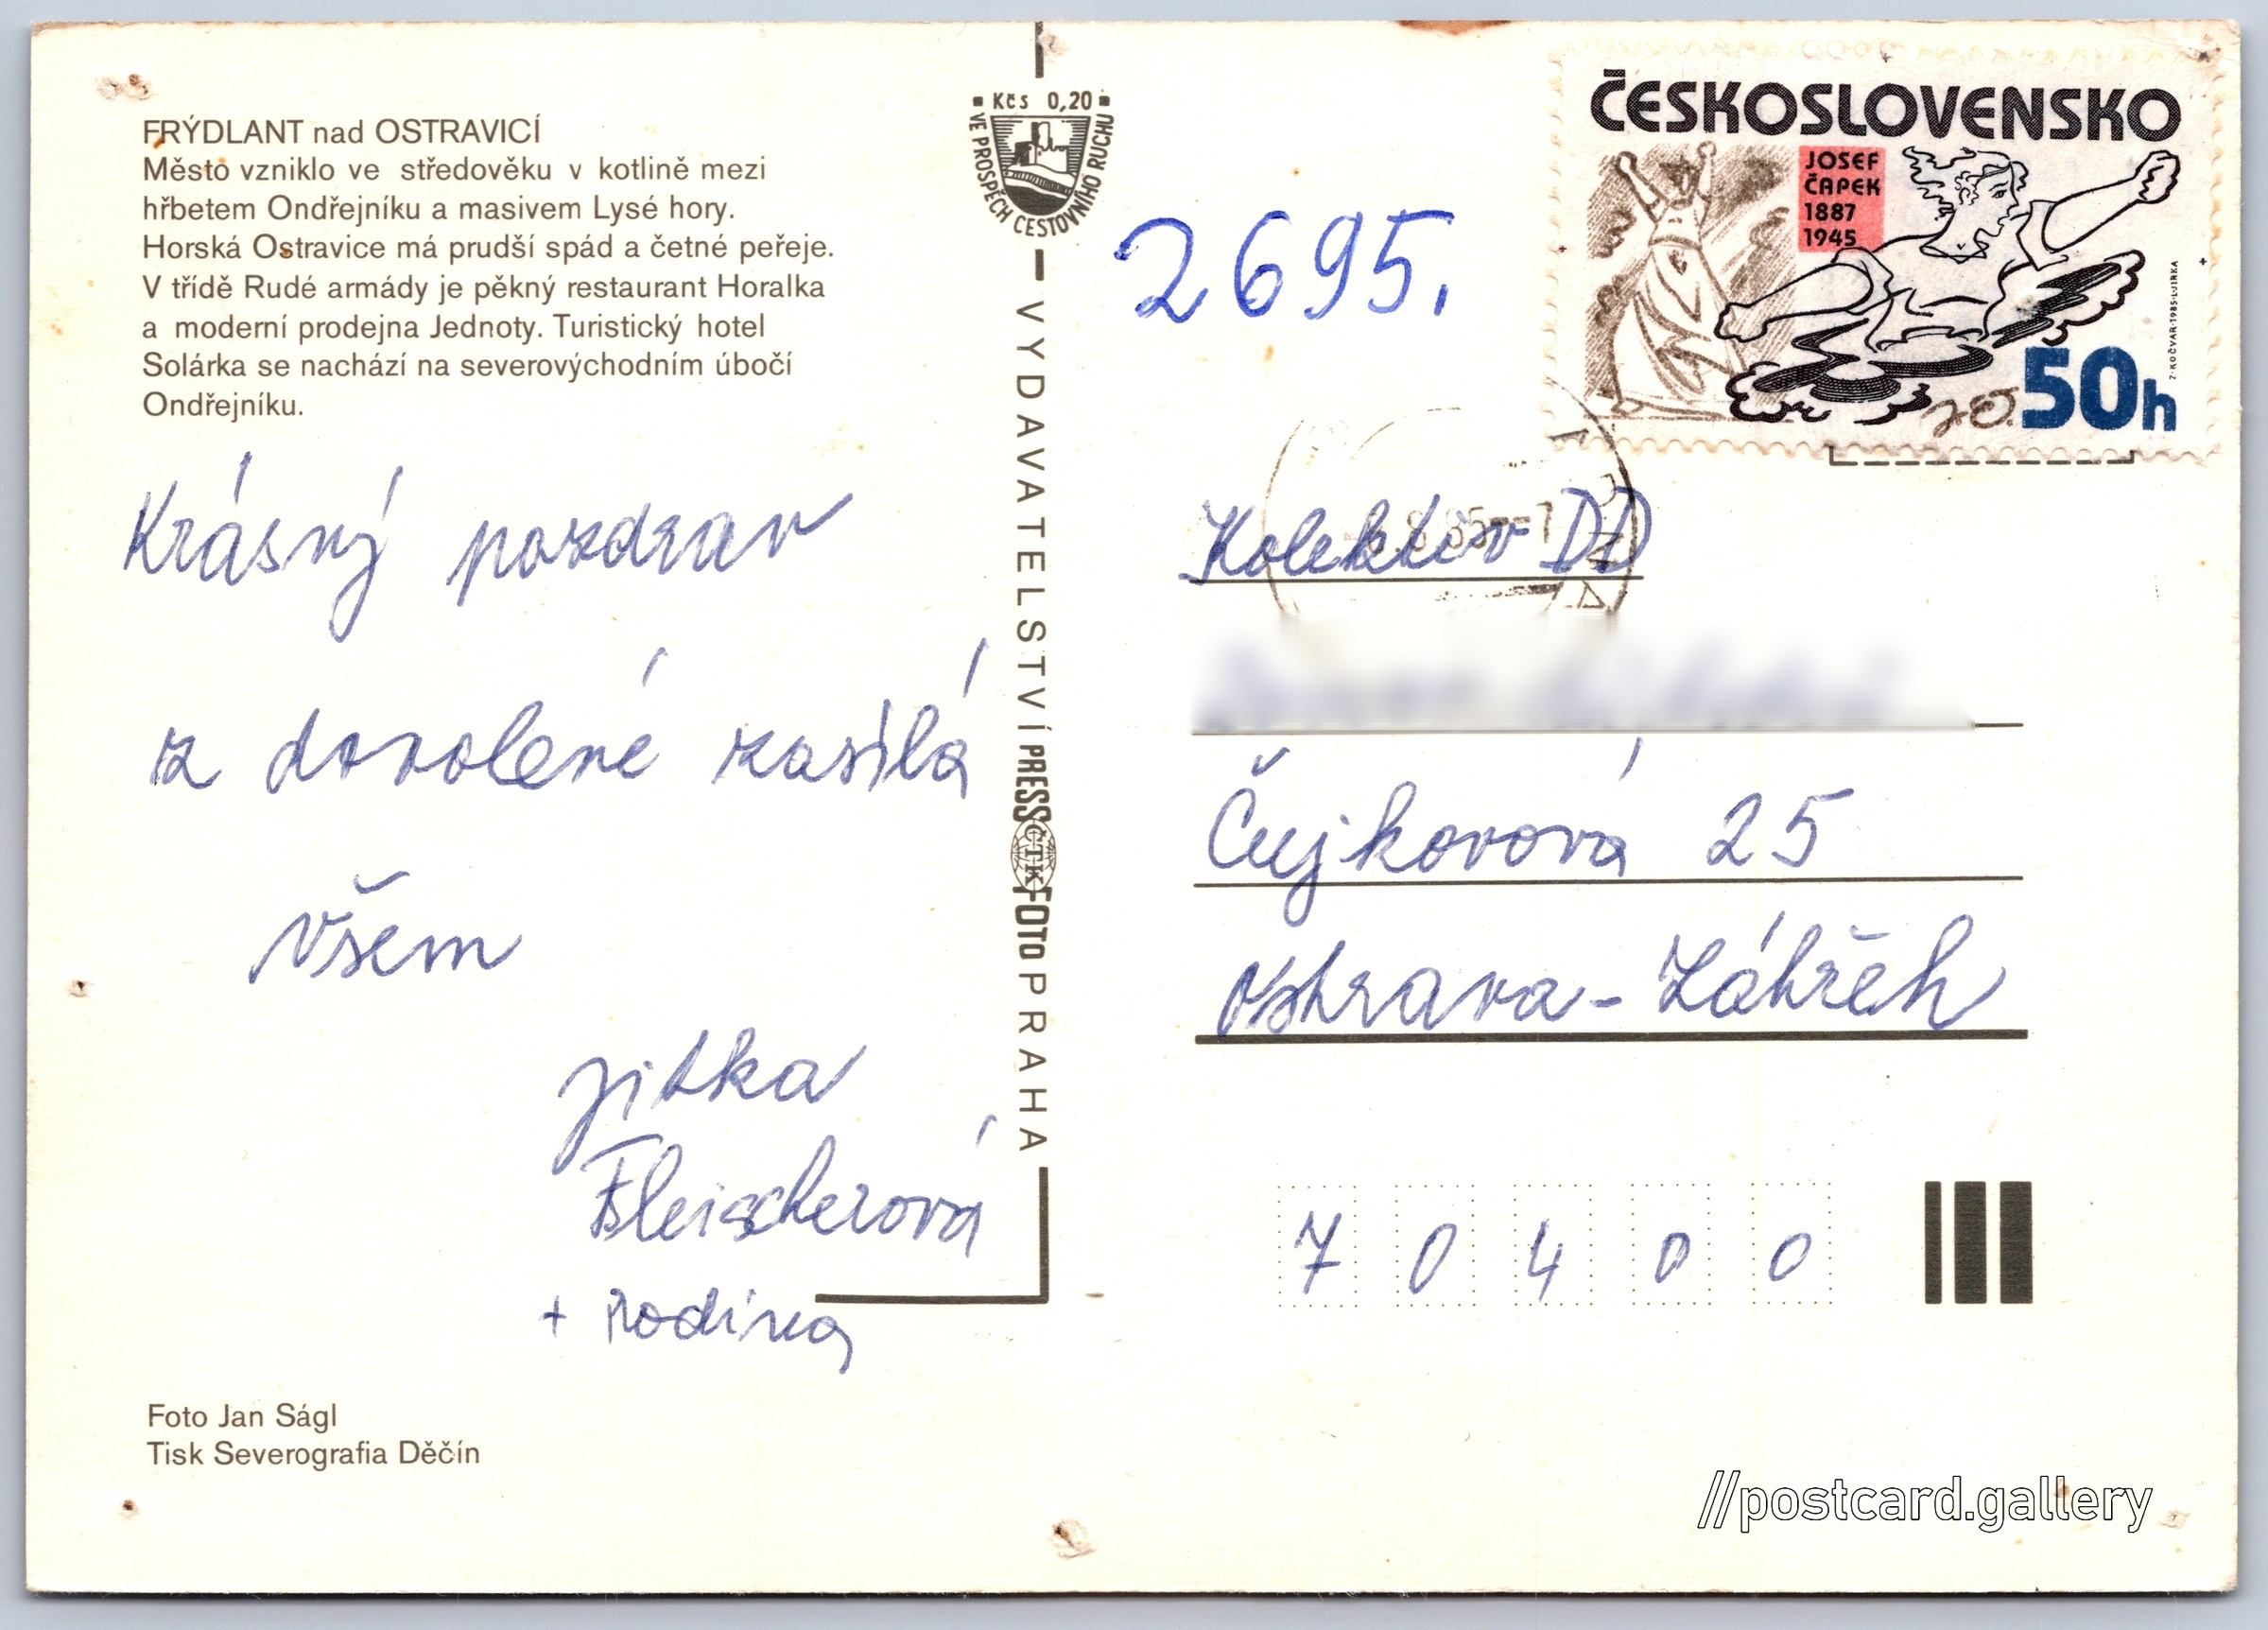 FRÝDLANT nad OSTRAVICÍ
Město vzniklo ve středověku v kotlině mezi
hřbetem Ondřejníku a masivem Lysé hory.
Horská Ostravice má prudší spád a četné peřeje.
V třídě Rudé armády je pěkný restaurant Horalka
a moderní prodejna Jednoty. Turistický hotel
Solárka se nachází na severovýchodním úbočí
Ondřejníku.
Krásný pozdrav
z dovolené zasílá
všem
Jitka
Fleischerová
+ rodina
Foto Jan Ságl
Tisk Severografia Děčín
Kčs 0,20
VE PROSPĚCH CESTOVNÍHO RUCHU
VYDAVATELSTVÍ PRESSFOTO PRAHA
ČTK
2695.
ČESKOSLOVENSKO
JOSEF
ČAPEK
1887
1945
50h
Kolektiv DD
Čujkovová 25
Ostrava-Zábřeh
7 0 4 0 0
//postcard.gallery